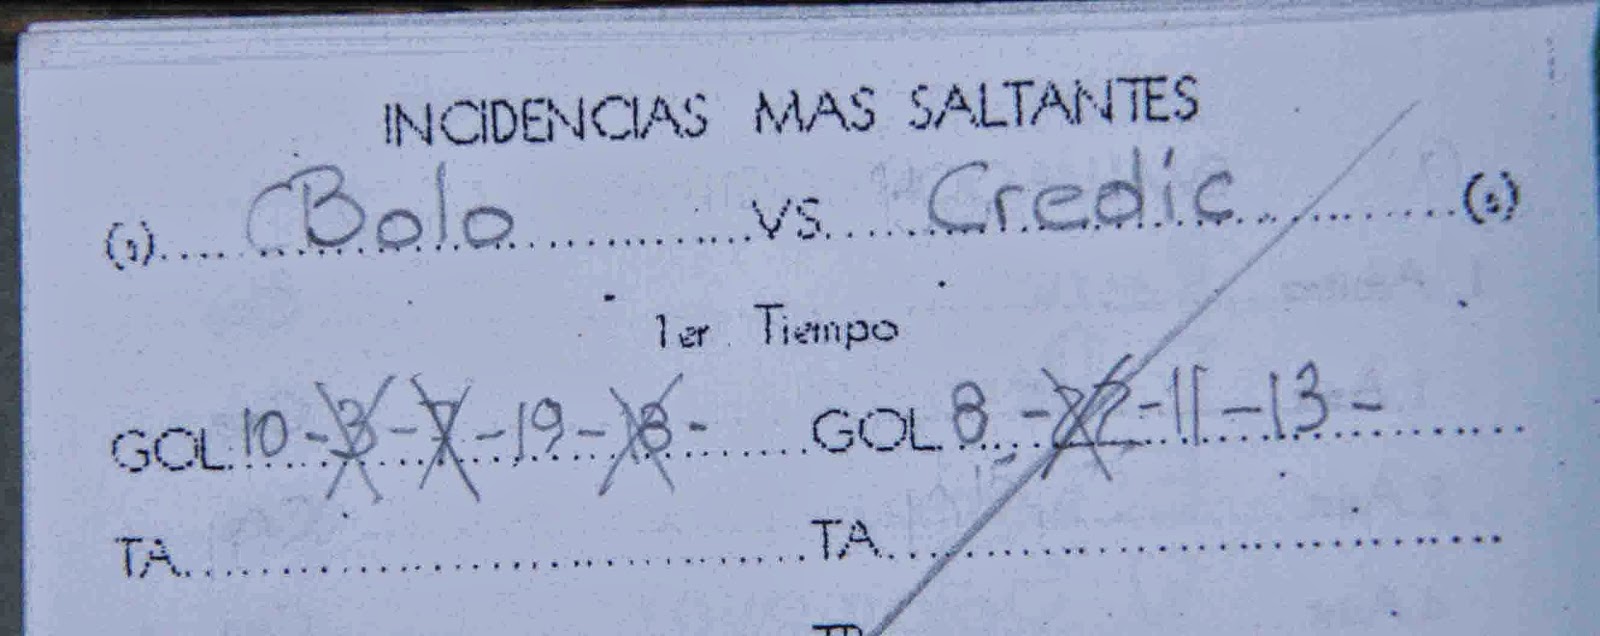 INCIDENCIAS MAS SALTANTES
(s) Bolo VS. Credic (s)
1er Tiempo
GOL 10 - 3 - 7 - 19 - 18 - GOL 8 - 22 - 11 - 13 -
TA TA